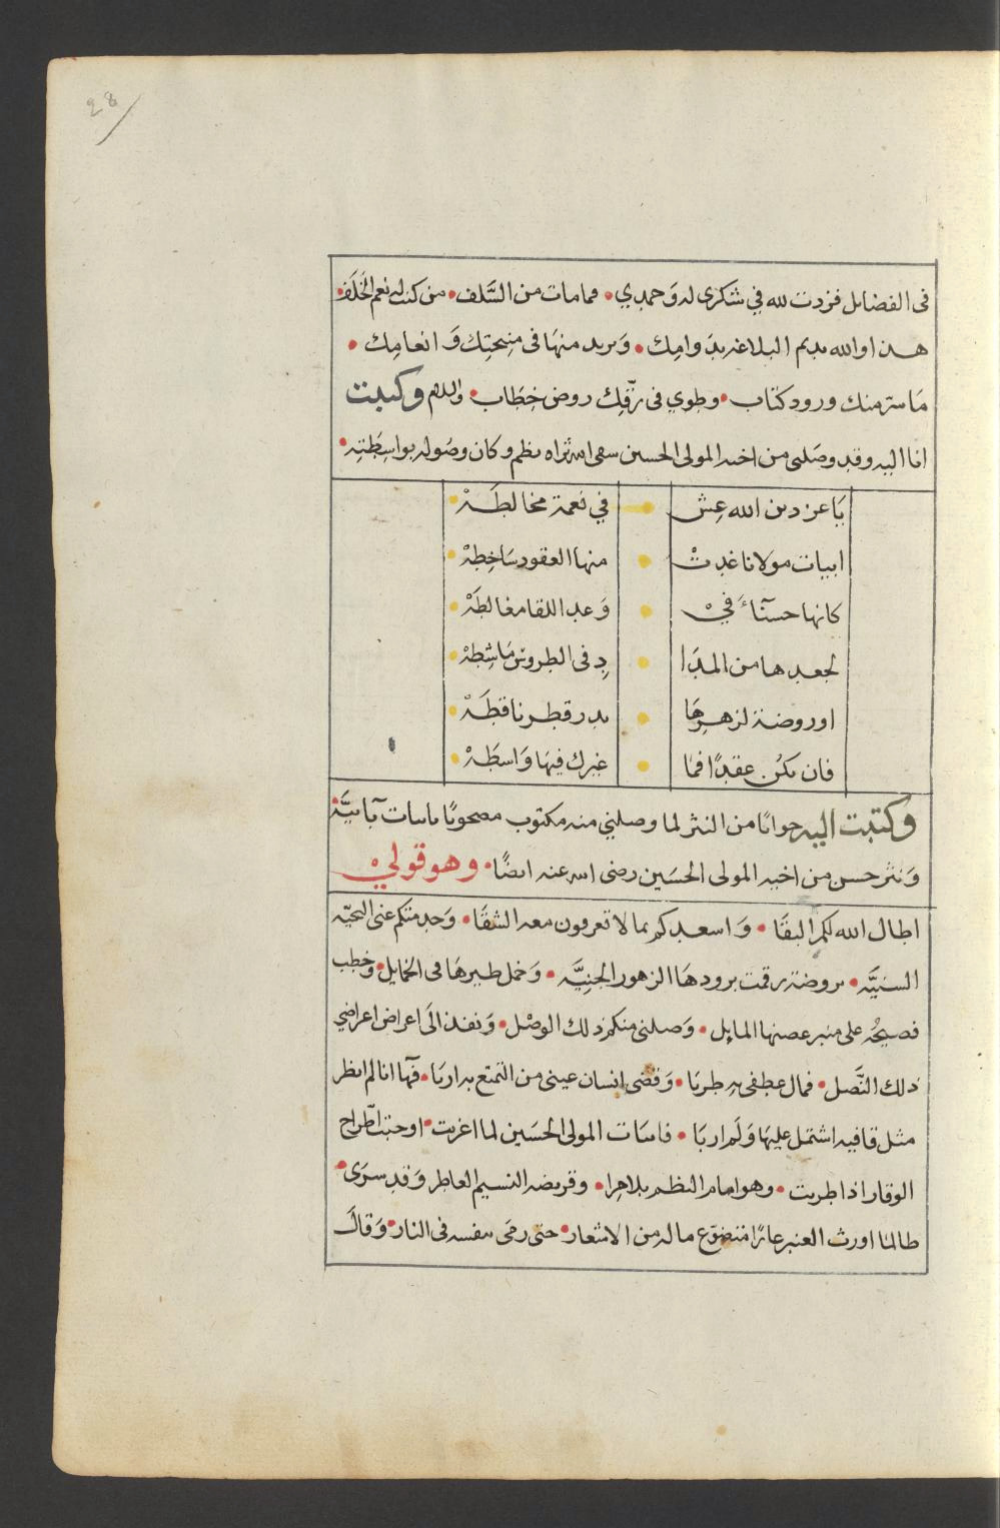 28
فى الفضائل فزدت لله في شكرى له وَحمدي • فما مات من السَّلف • من كنت له نعم الخَلَف •
هذا والله يديم البلاغة بدَوامِك • وَيزيد منها فى منحتِك وَانعامِك •
مَا سرّ منك ورود كتاب • وطوي فى رَقِّك روض خِطَاب • والسلام وكتبت
انا اليه وقد وصَلنى من اخيه المولى الحسين سقى الله ثراه نظم وكان وصُوله بواسِطَتِه •
يَا عز دين الله عِش • في نعمة مخالطَهْ •
ابيات مولانا غدتْ • منها العقود سَاخِطهْ •
كانها حسنَآءَ فيْ • وَعد اللقا مغالطَهْ •
لجعدها من المدَا • دِ فى الطروس مَاشِطهْ •
او روضة لزهرهَا • بدر قطر ناقطَهْ •
فان يكُن عقدًا فما • غيرك فيهَا وَاسطَهْ •
وكتبت اليه جوابًا من النثر لما وصلني منه مكتوب مصحوبًا بابيات
وَنثر حسن من اخيه المولى الحسَين رضى الله عنه ايضًا • وهو قوليْ
اطال الله لكم البقَا • وَاسعدكم بما لا تعرفون معه الشقَا • وَحد متكم عنى التحيّه
السنيَّه • بروضة رقمت برودهَا الزهور الجنِيَّه • وَخمل طيرهَا فى الخمايل • وخطب
فصيحُه على منبر غصنها المايل • وَصلنى منكم ذلك الوصْل • وَنفذ الَى اعراض اعراضي
ذلك النَّصل • فمال عطفى به طربَا • وَقضى انسان عينى من التمتع به اربَا • فها انا لم انظر
مثل قافيه اشتمل عليهَا وَلَم اربَا • فابيات المولى الحسَين لما اغربت • اوجبت اطّراح
الوقار اذا طربت • وهو امام النظم بلا مِرا • وقريضه النسيم العاطر وَقد سرَى •
طالما اورث العنبر عارًا تضوّع ماله من الاشعار • حتى رمَى بنفسه فى النار • وَقالَ